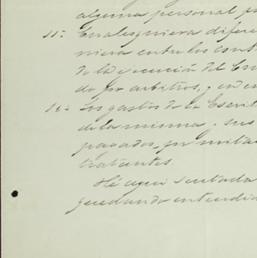 alguna personal p
15ª Cualesquiera difere
niera entre los cont
de la ejecución del Con
do por arbitros, y en c
16ª Los gastos de la Escrit
de la misma, sus
pagados por mitad
tratantes.
Hé aquí sentada
quedando entendid